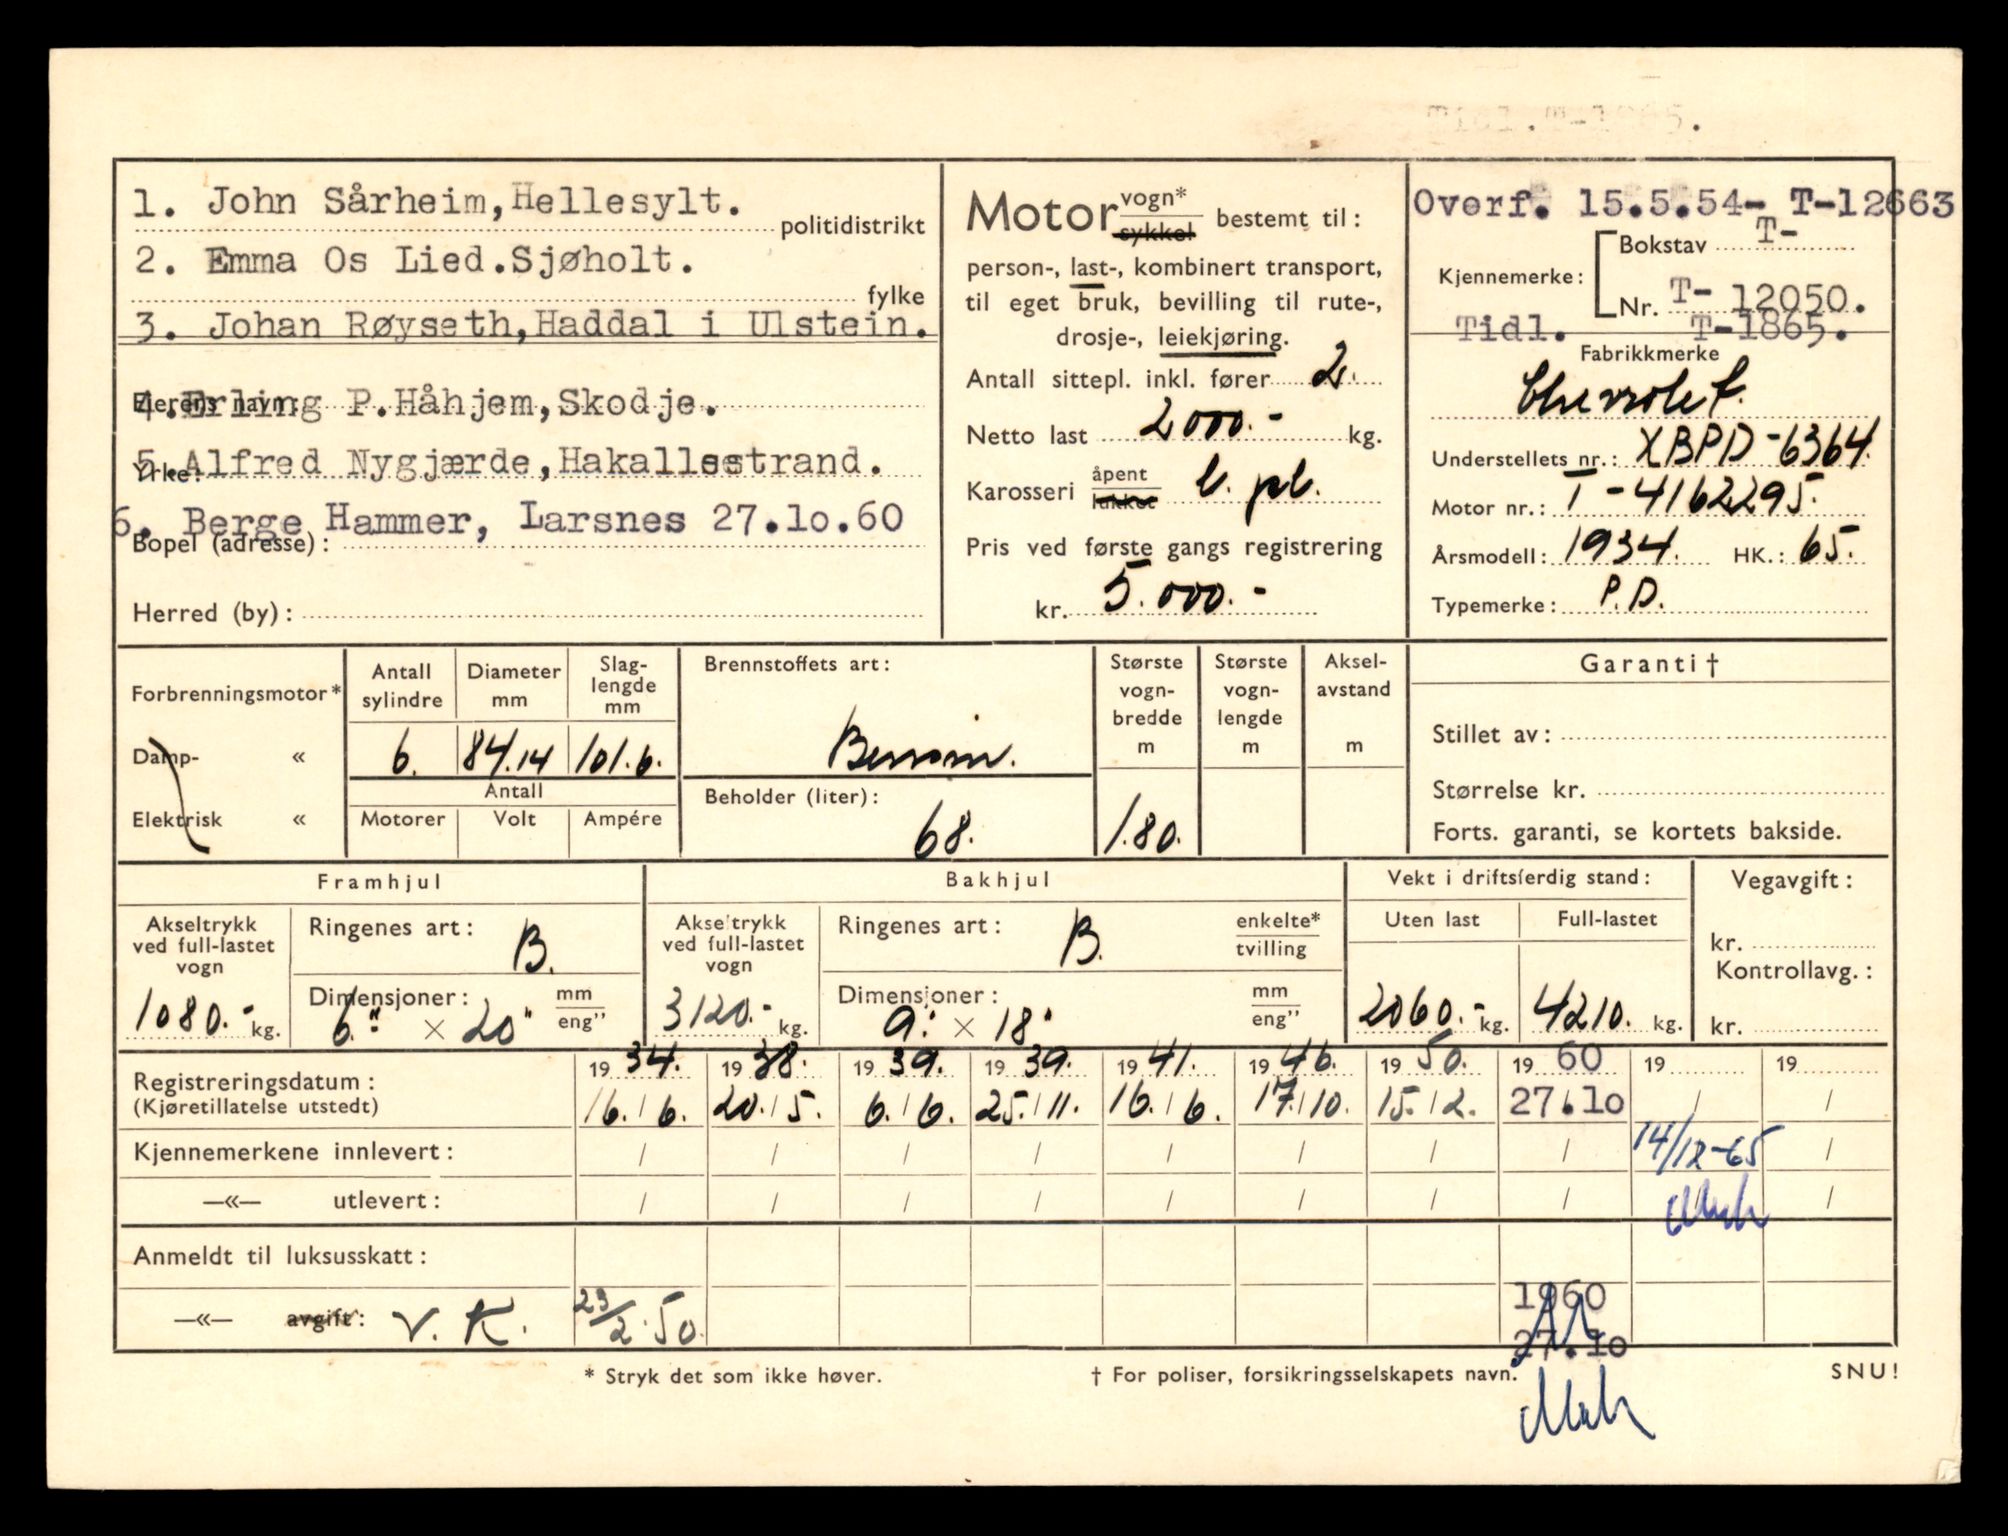 1. John Sårheim, Hellesylt.
politidistrikt
2. Emma Os Lied. Sjøholt.
fylke
3. Johan Røyseth, Haddal i Ulstein.
Eierens navn:
4. Erling P. Håhjem, Skodje.
Yrke:
5. Alfred Nygjærde, Hakallestrand.
6. Berge Hammer, Larsnes 27.10.60
Bopel (adresse):
Herred (by):
Motor vogn* sykkel bestemt til:
person-, last-, kombinert transport,
til eget bruk, bevilling til rute-,
drosje-, leiekjøring.
Antall sittepl. inkl. fører 2.
Netto last 2000.- kg.
Karosseri åpent lukket l. pl.
Pris ved første gangs registrering
kr. 5.000.-
Overf. 15.5.54- T-12663
Kjennemerke: Bokstav T-
Nr. T- 12050.
Tidl. T-1865.
Fabrikkmerke
Chevrolet.
Understellets nr.: XBPD-6364.
Motor nr.: T-4162295.
Årsmodell: 1934. HK.: 65.
Typemerke: P.D.
Forbrenningsmotor*
Damp- «
Elektrisk «
Antall sylindre
Diameter mm
Slag-lengde mm
6. 84.14 101.6.
Antall
Motorer Volt Ampére
Brennstoffets art:
Bensin.
Beholder (liter):
68.
Største vogn-bredde m
1.80.
Største vogn-lengde m
Aksel-avstand m
Garanti †
Stillet av:
Størrelse kr.
Forts. garanti, se kortets bakside.
Framhjul
Akseltrykk ved full-lastet vogn
1080.- kg.
Ringenes art: B.
Dimensjoner: mm eng"
6." × 20"
Bakhjul
Akseltrykk ved full-lastet vogn
3120.- kg.
Ringenes art: B. enkelte* tvilling
Dimensjoner: mm eng"
9." × 18"
Vekt i driftsferdig stand:
Uten last Full-lastet
2060.- kg. 4210. kg.
Vegavgift:
kr.
Kontrollavg.:
kr.
Registreringsdatum: 19 34. 19 38. 19 39. 19 39. 19 41. 19 46. 19 50. 19 60 19 19
(Kjøretillatelse utstedt) 16./6. 20./5. 6./6. 25./11. 16./6. 17./10. 15./2. 27.10 / /
Kjennemerkene innlevert: / / / / / / / / 14/12-65 /
—«— utlevert: / / / / / / / / /
Anmeldt til luksusskatt:
—«— avgift: V. K. 23/2.50.
1960
27.10
* Stryk det som ikke høver.
† For poliser, forsikringsselskapets navn.
SNU!